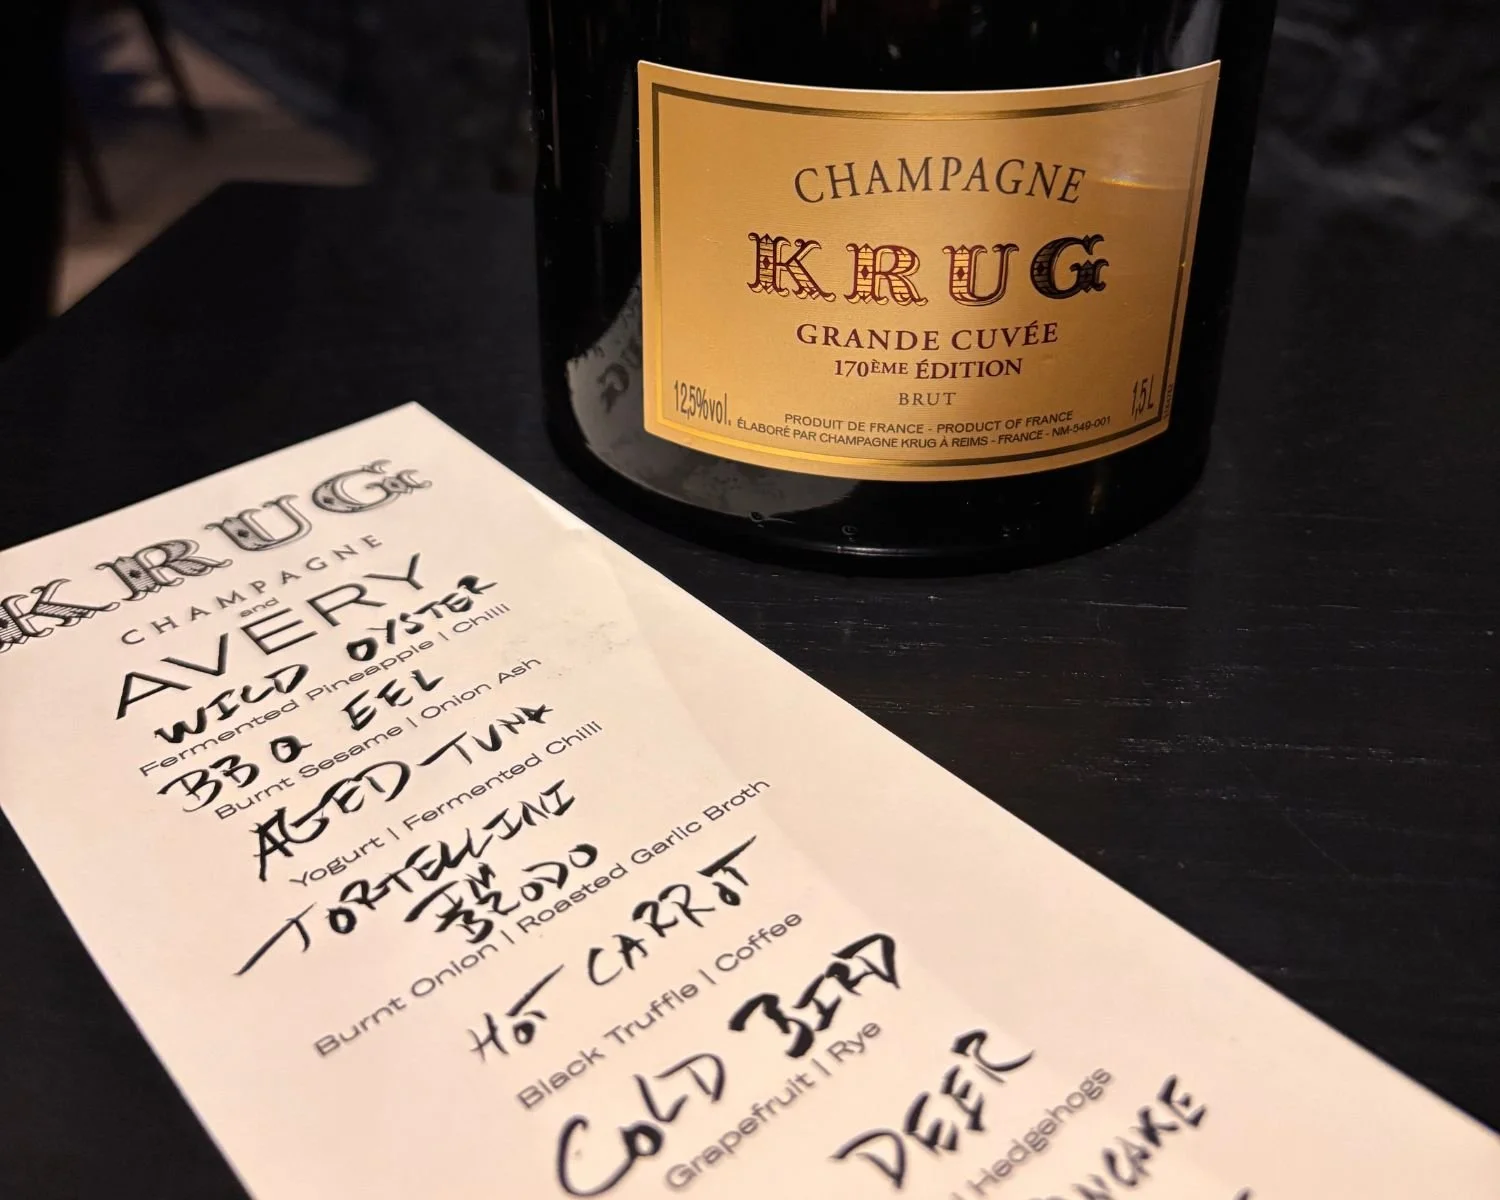 CHAMPAGNE
KRUG
GRANDE CUVÉE
170ÈME ÉDITION
BRUT
12,5%vol.
1,5 L
PRODUIT DE FRANCE - PRODUCT OF FRANCE
ÉLABORÉ PAR CHAMPAGNE KRUG À REIMS - FRANCE - NM-549-001
KRUG
CHAMPAGNE
and
AVERY
WILD OYSTER
Fermented Pineapple | Chilli
BBQ EEL
Burnt Sesame | Onion Ash
AGED TUNA
Yogurt | Fermented Chilli
TORTELLINI
IN
BRODO
Burnt Onion | Roasted Garlic Broth
HOT CARROT
Black Truffle | Coffee
COLD BIRD
Grapefruit | Rye
DEER
| Hedgehogs